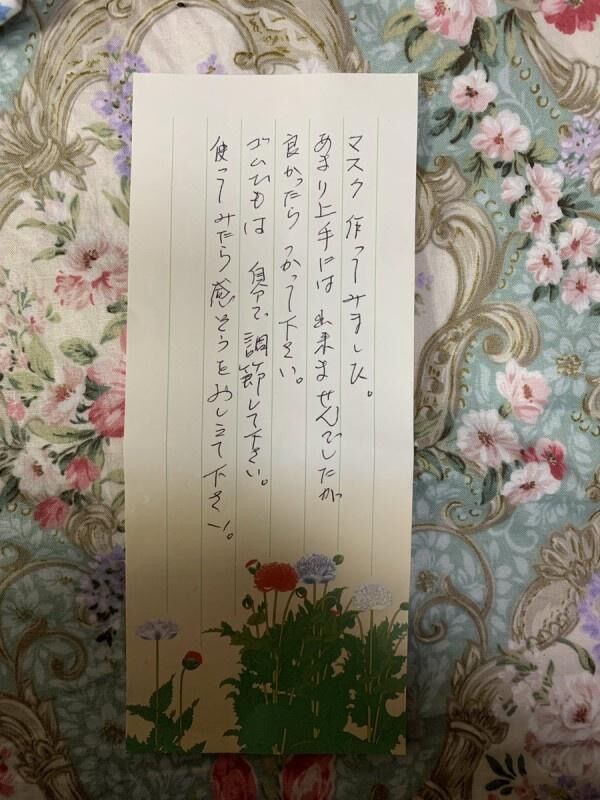 マスク作ってみました。
あまり上手には出来ませんでしたが
良かったらつかって下さい。
ゴムひもは自分で調節して下さい。
使ってみたら感そうをおしえて下さい。